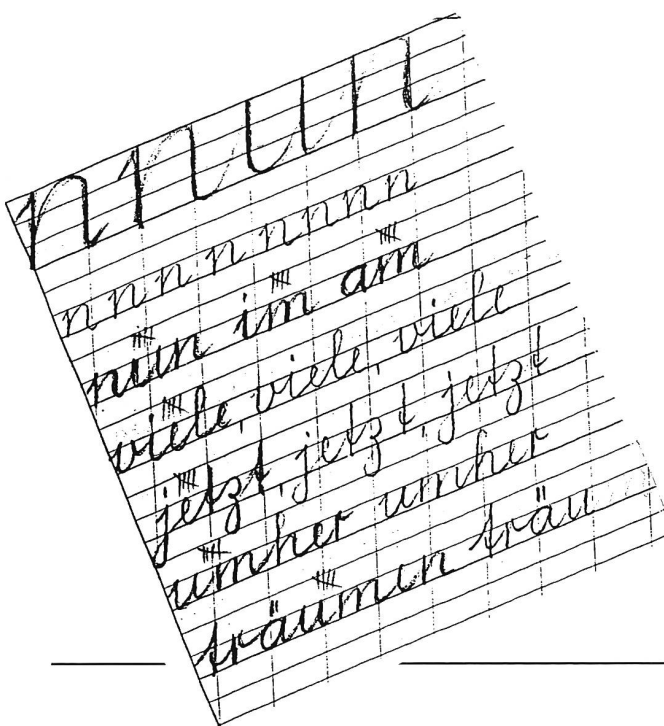 n nun
n n n n n n n n
nun im am
viele, viele, viele
jetzt, jetzt, jetzt
umher umher
träumen träu